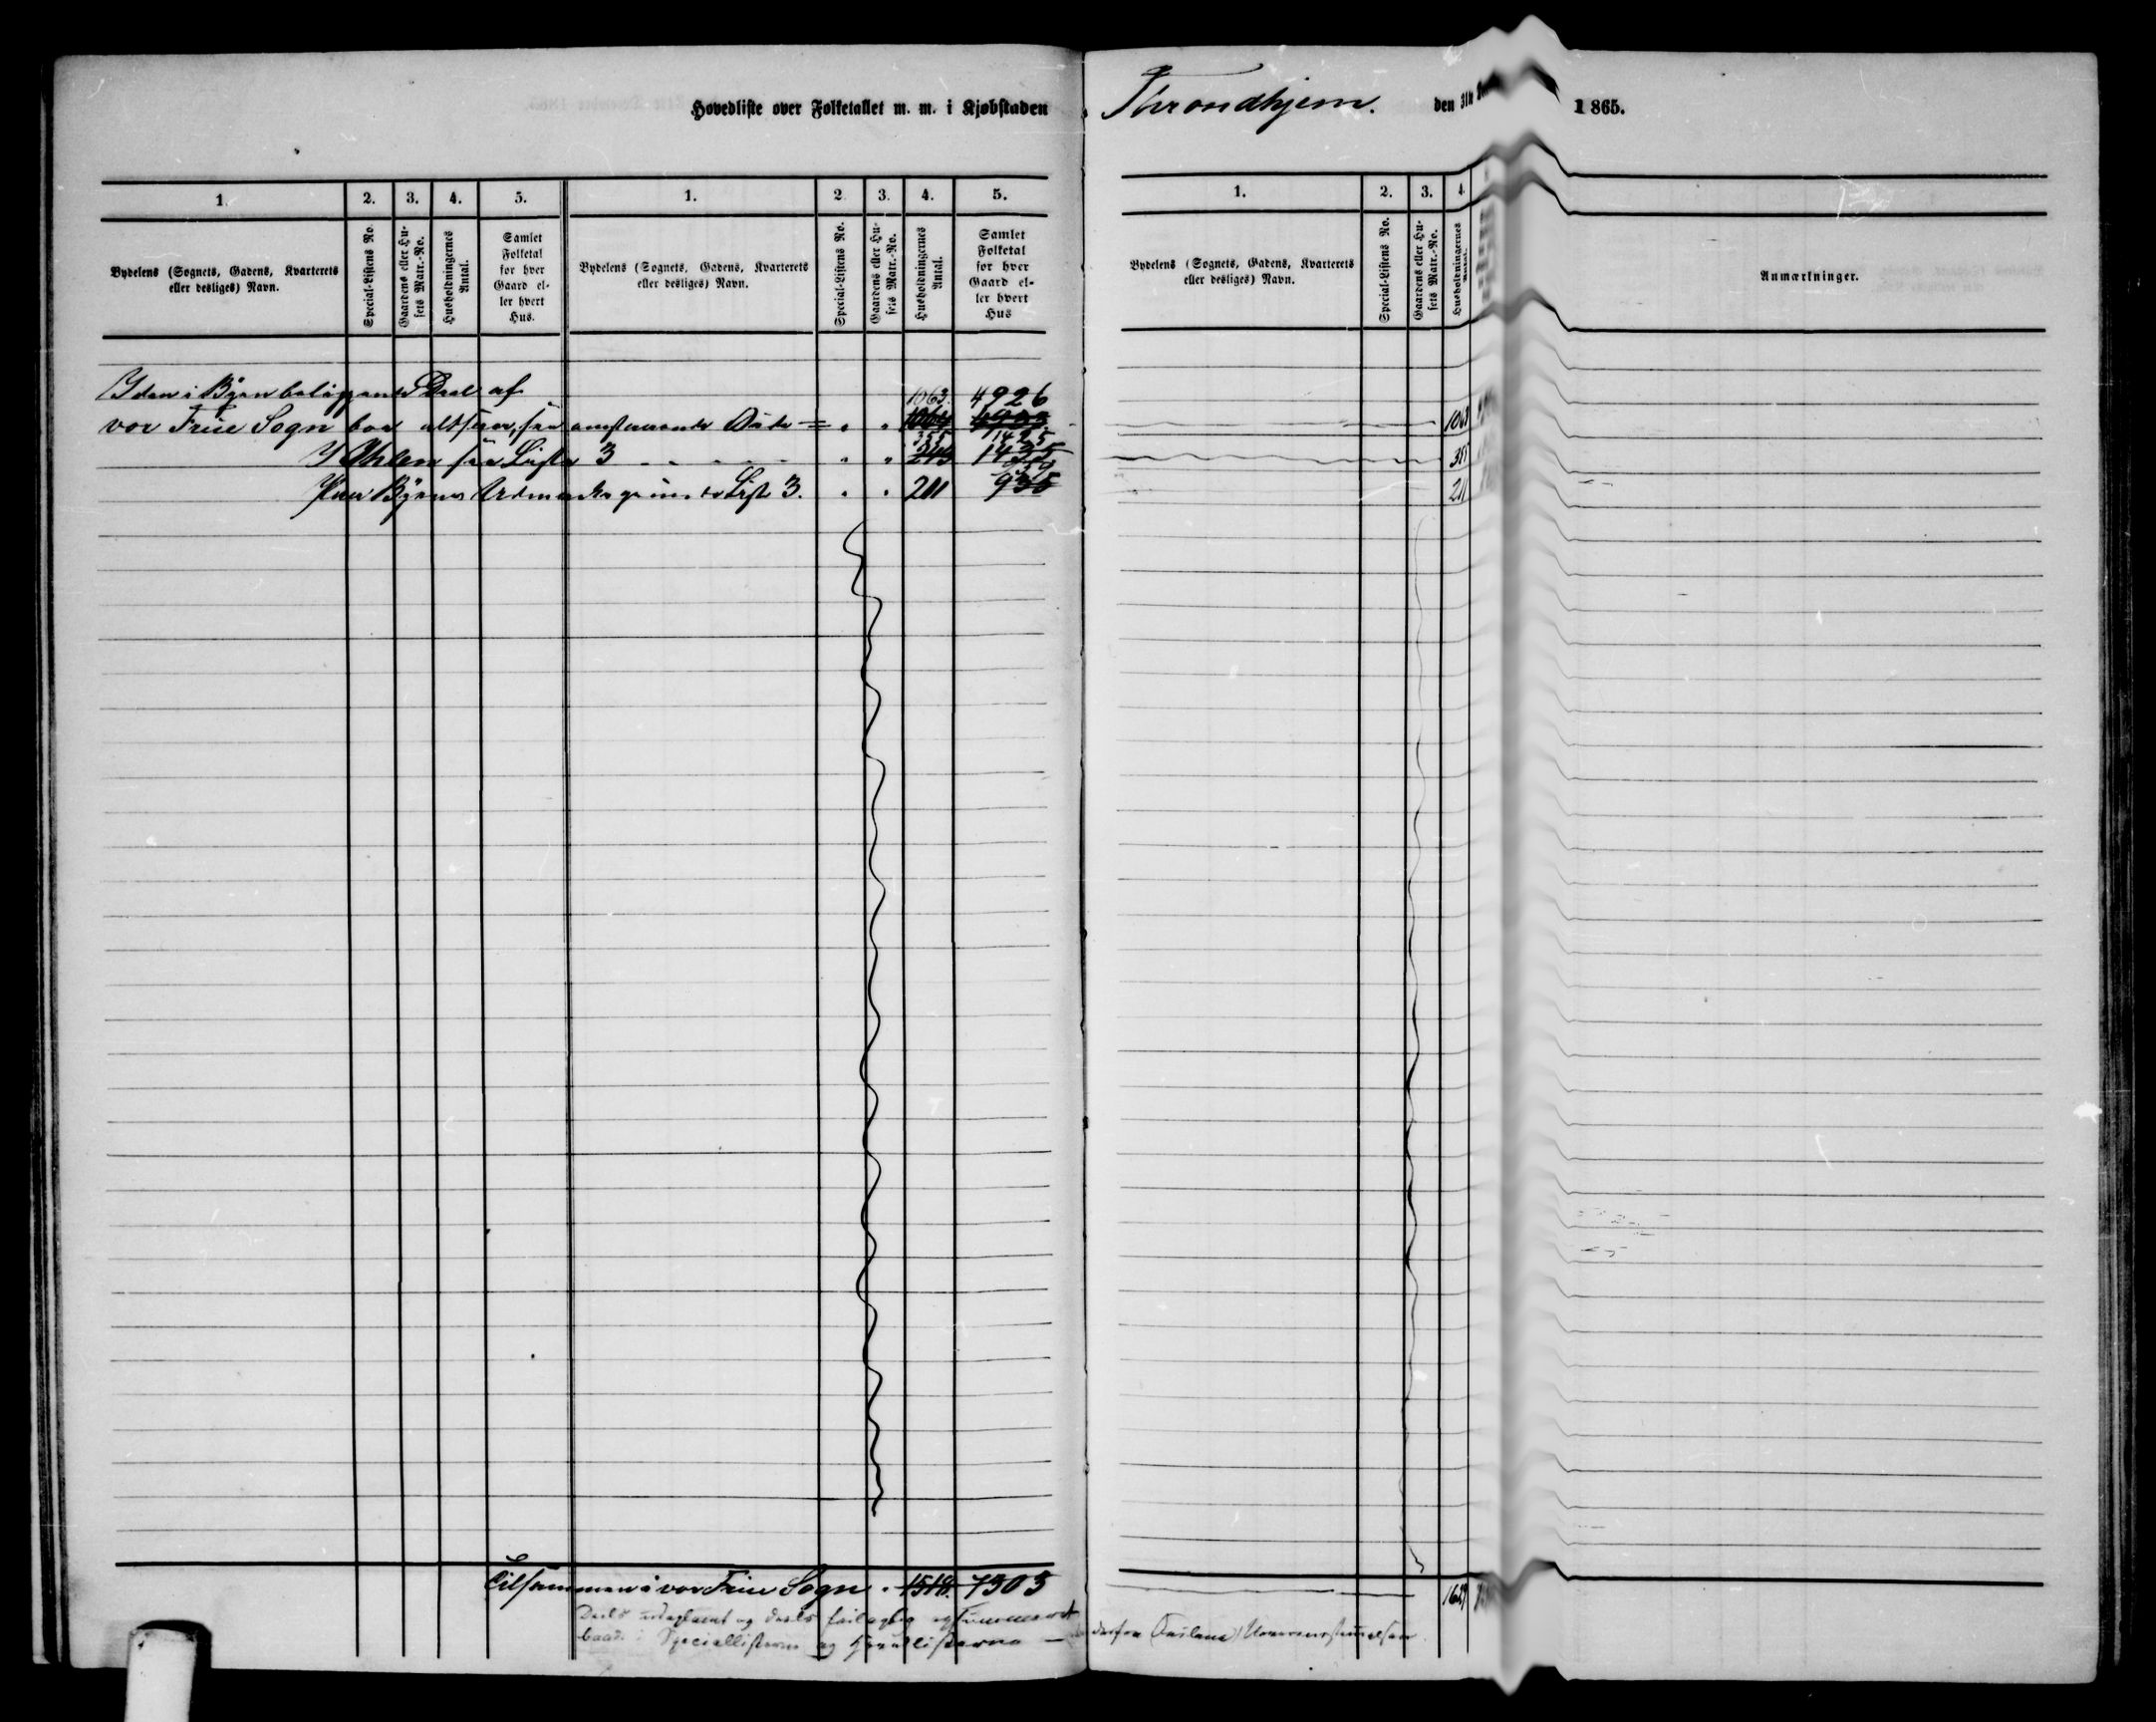 Hovedliste over Folketallet m. m. i Kjøbstaden Throndhjem. den 31te 1865.
1. 2. 3. 4. 5. 1. 2. 3. 4. 5.
Bydelens (Sognets, Gadens, Kvarterets eller desliges) Navn.
Special-Listens No.
Gaardens eller Husets Matr.-No.
Husholdningernes Antal.
Samlet Folketal for hver Gaard eller hvert Hus.
Bydelens (Sognets, Gadens, Kvarterets eller desliges) Navn.
Special-Listens No.
Gaardens eller Husets Matr.-No.
Husholdningernes Antal.
Samlet Folketal for hver Gaard eller hvert Hus
I den i Byen beliggende Deel af 1063. 4926
vor Frue Sogn boe altsaa, see omstaaende Side = " " 1064
355 1425
I Ihlen see Liste 3 " " 243 1435
959
Paa Byens Udmarksgrund Liste 3. " " 211 935
Tilsammen i vor Frue Sogn " 1518. 7303
Deels udeglemt og deels feilagtig
baade i Speciallisterne og Huuslisterne —
1. 2. 3. 4.
Bydelens (Sognets, Gadens, Kvarterets eller desliges) Navn.
Special-Listens No.
Gaardens eller Husets Matr.-No.
Husholdningernes Antal.
Anmærkninger.
1063
355
211
1629
derfra Uoverensstemmelsen